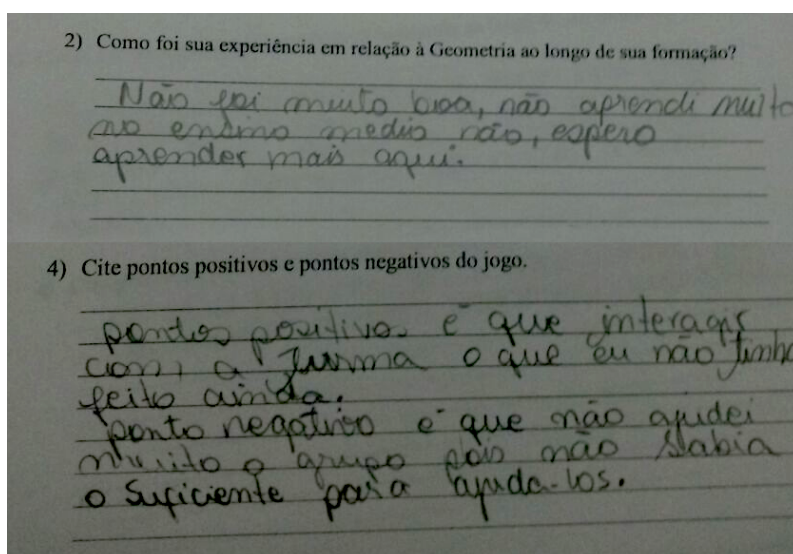 2) Como foi sua experiência em relação à Geometria ao longo de sua formação?
Não foi muito boa, não aprendi muito
no ensino medio não, espero
aprender mais aqui.
4) Cite pontos positivos e pontos negativos do jogo.
pontos positivos é que interagir
com a turma o que eu não tinha
feito ainda.
ponto negativo é que não ajudei
muito o grupo pois não sabia
o suficiente para ajuda-los.